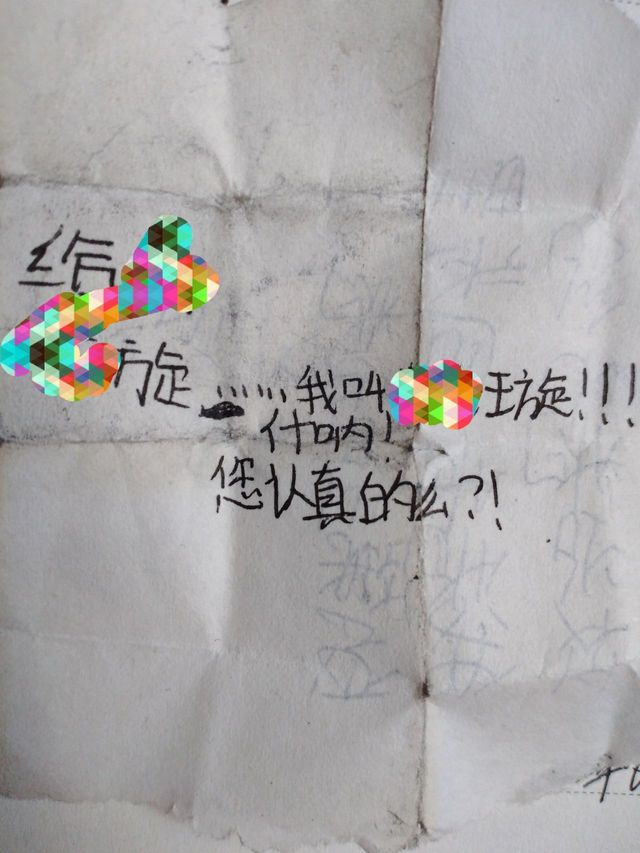 给
旋……我叫 璇!!!
什呐!
您认真的么?!